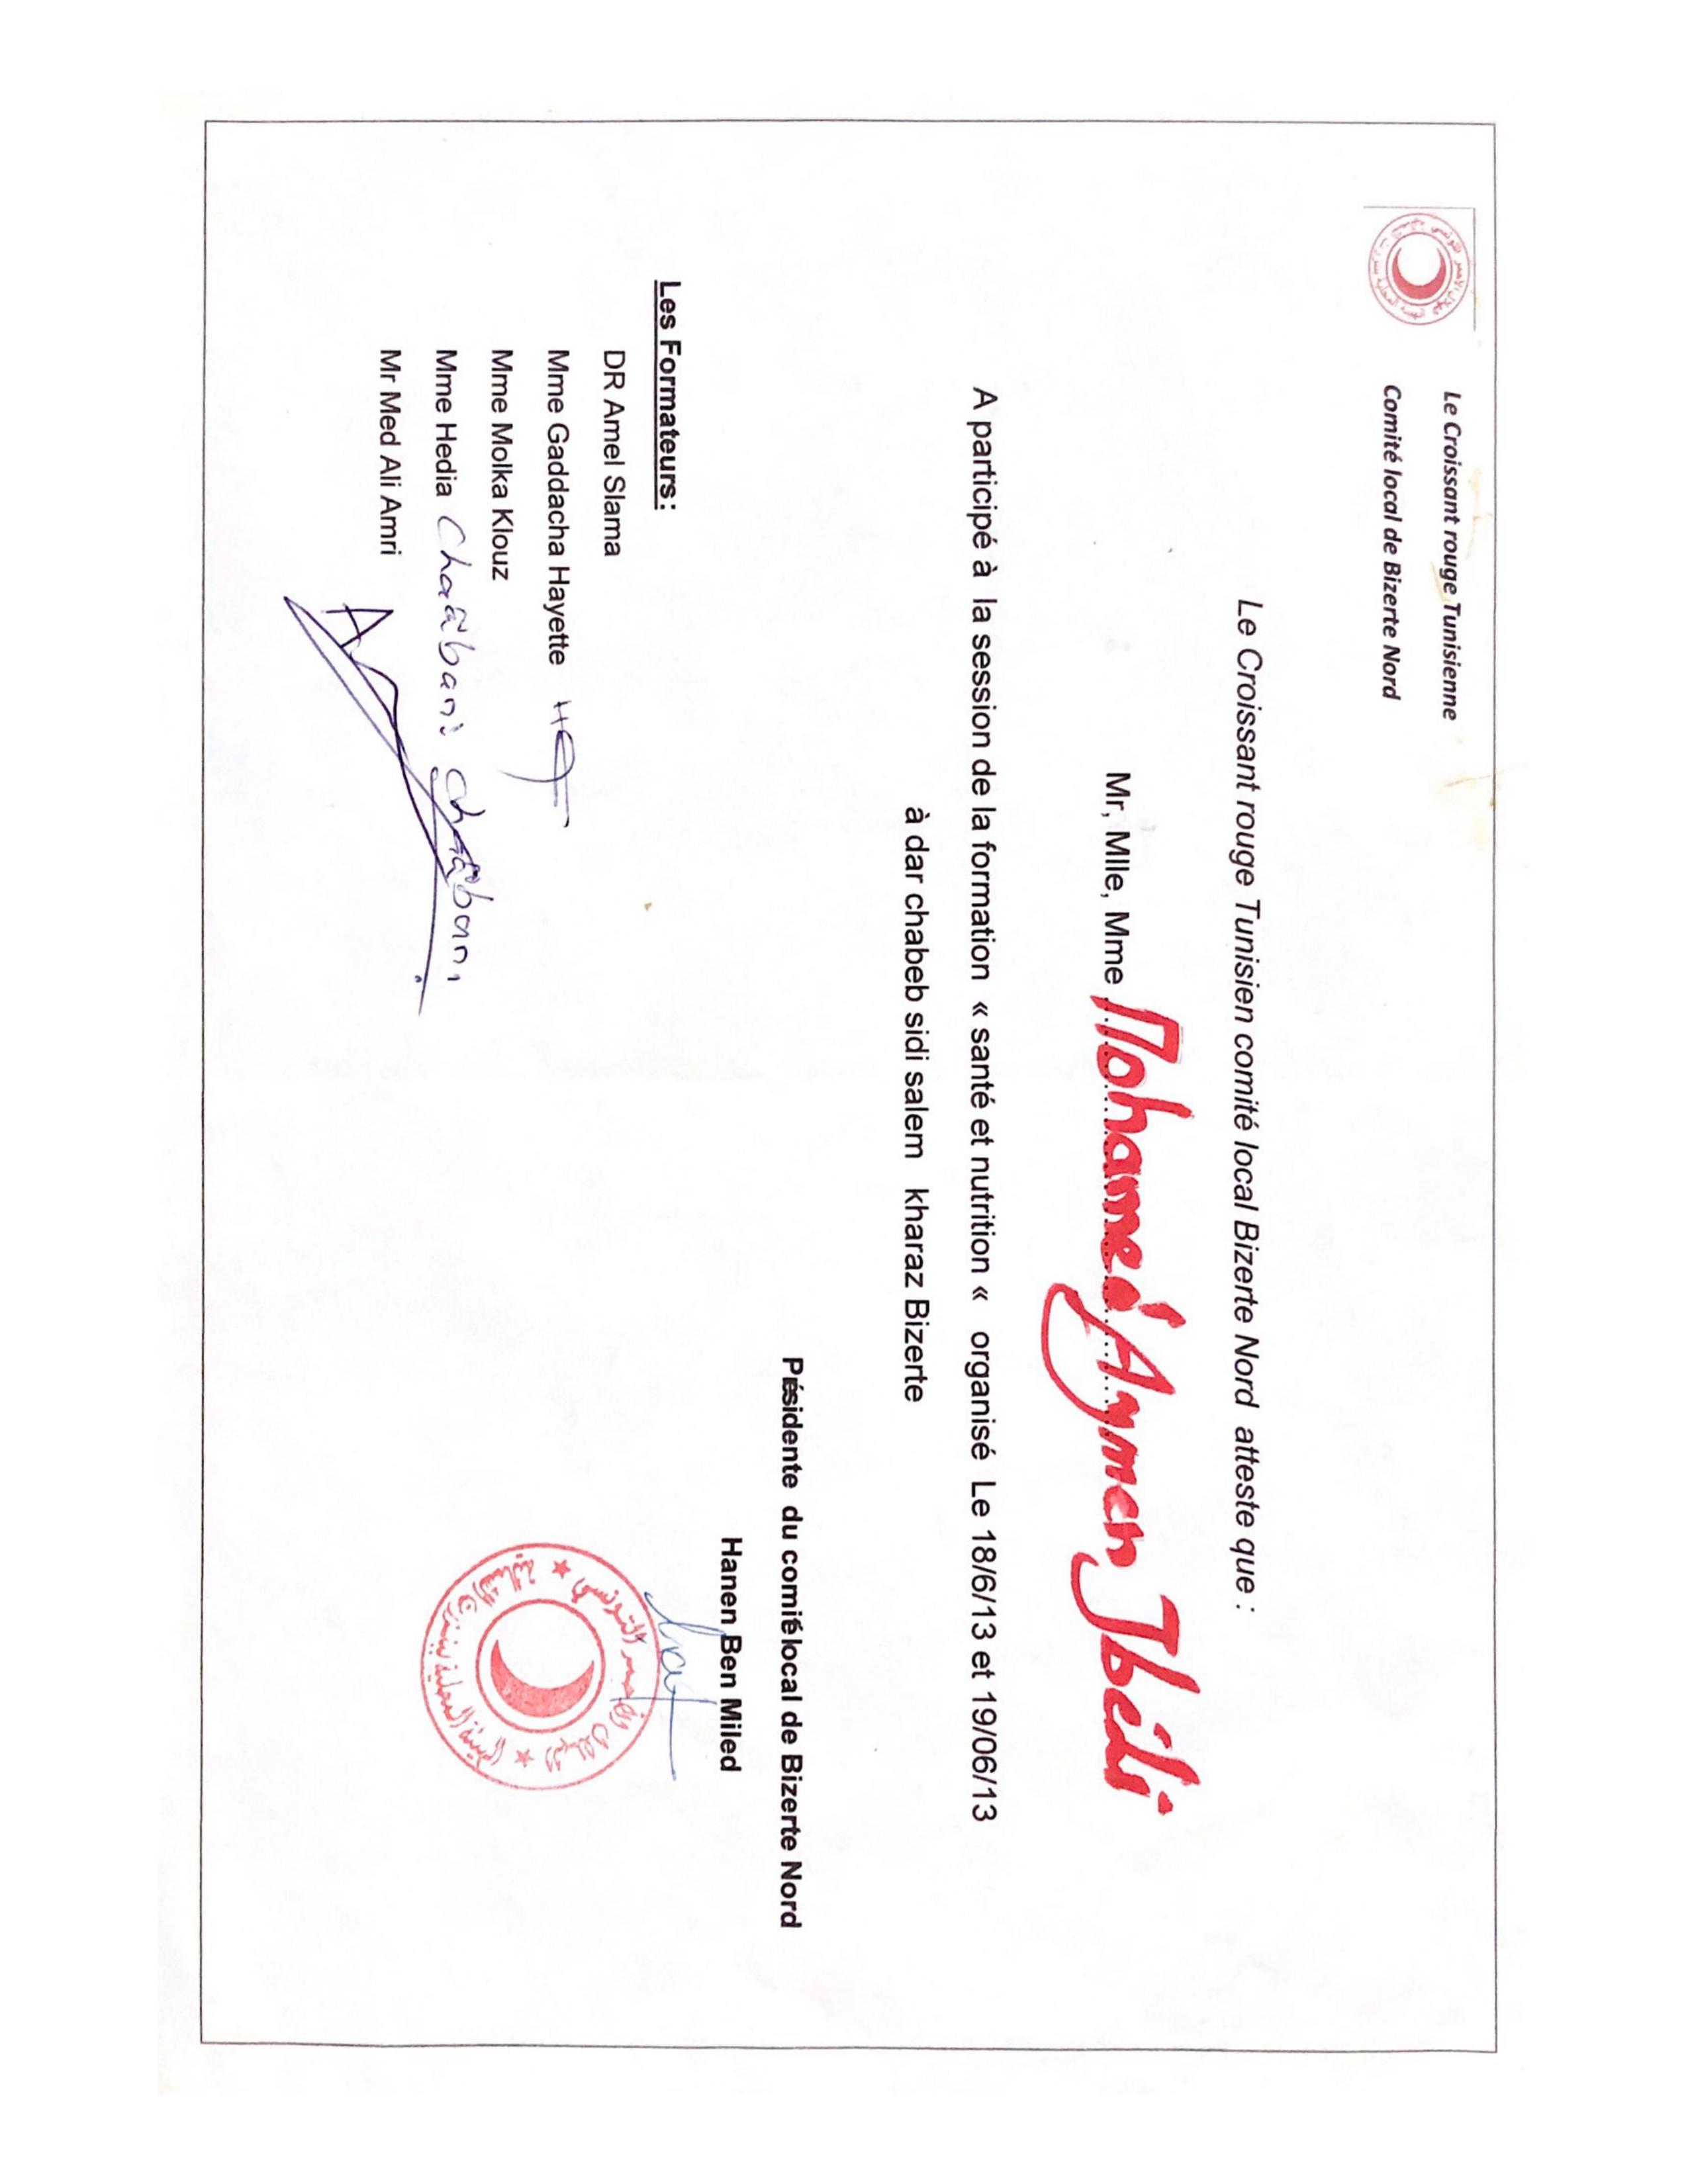 Le Croissant rouge Tunisienne
Comité local de Bizerte Nord
Le Croissant rouge Tunisien comité local Bizerte Nord atteste que :
Mr, Mlle, Mme Mohamed Aymen Jbéli
A participé à la session de la formation « santé et nutrition « organisé Le 18/6/13 et 19/06/13
à dar chabeb sidi salem kharaz Bizerte
Présidente du comité local de Bizerte Nord
Hanen Ben Miled
Les Formateurs:
DR Amel Slama
Mme Gaddacha Hayette
Mme Molka Klouz
Mme Hedia Chaâbani Chaâbani
Mr Med Ali Amri
الهلال الأحمر التونسي
الهيئة المحلية ببنزرت الشمالية